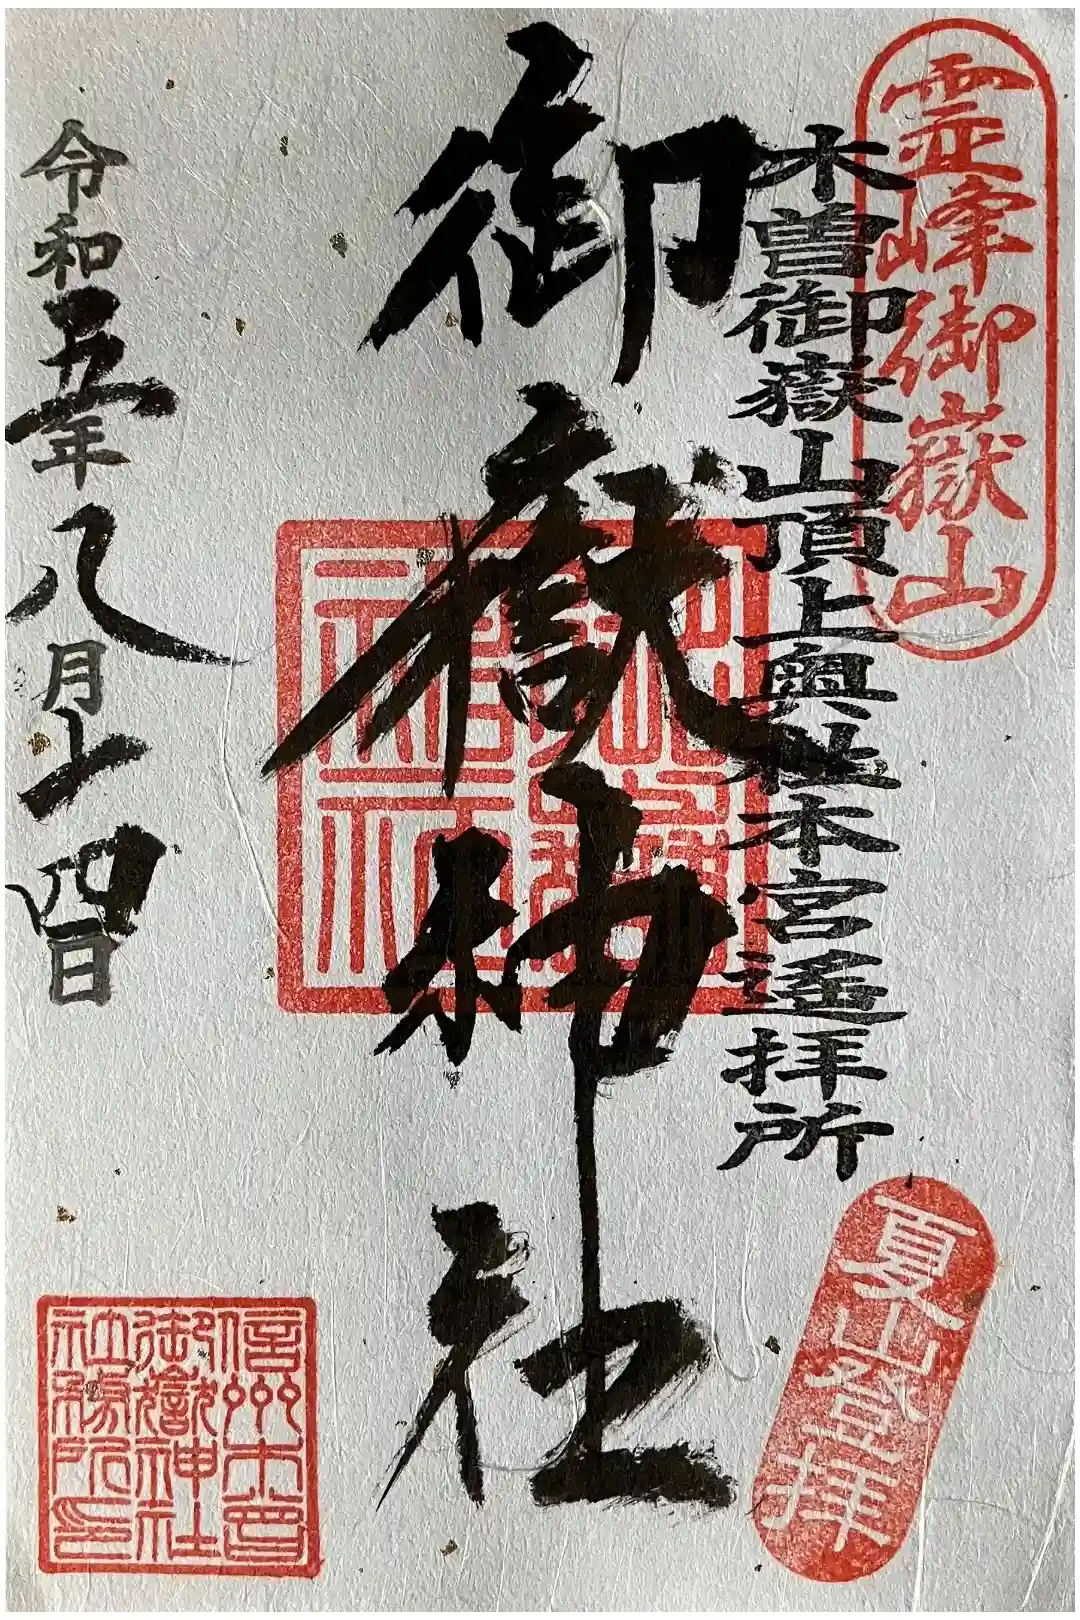 霊峰御嶽山
木曽御嶽山頂上奥社本宮遥拝所
夏山登拝
御嶽神社
令和五年八月十四日
信州木曽
御嶽神社
社務所印